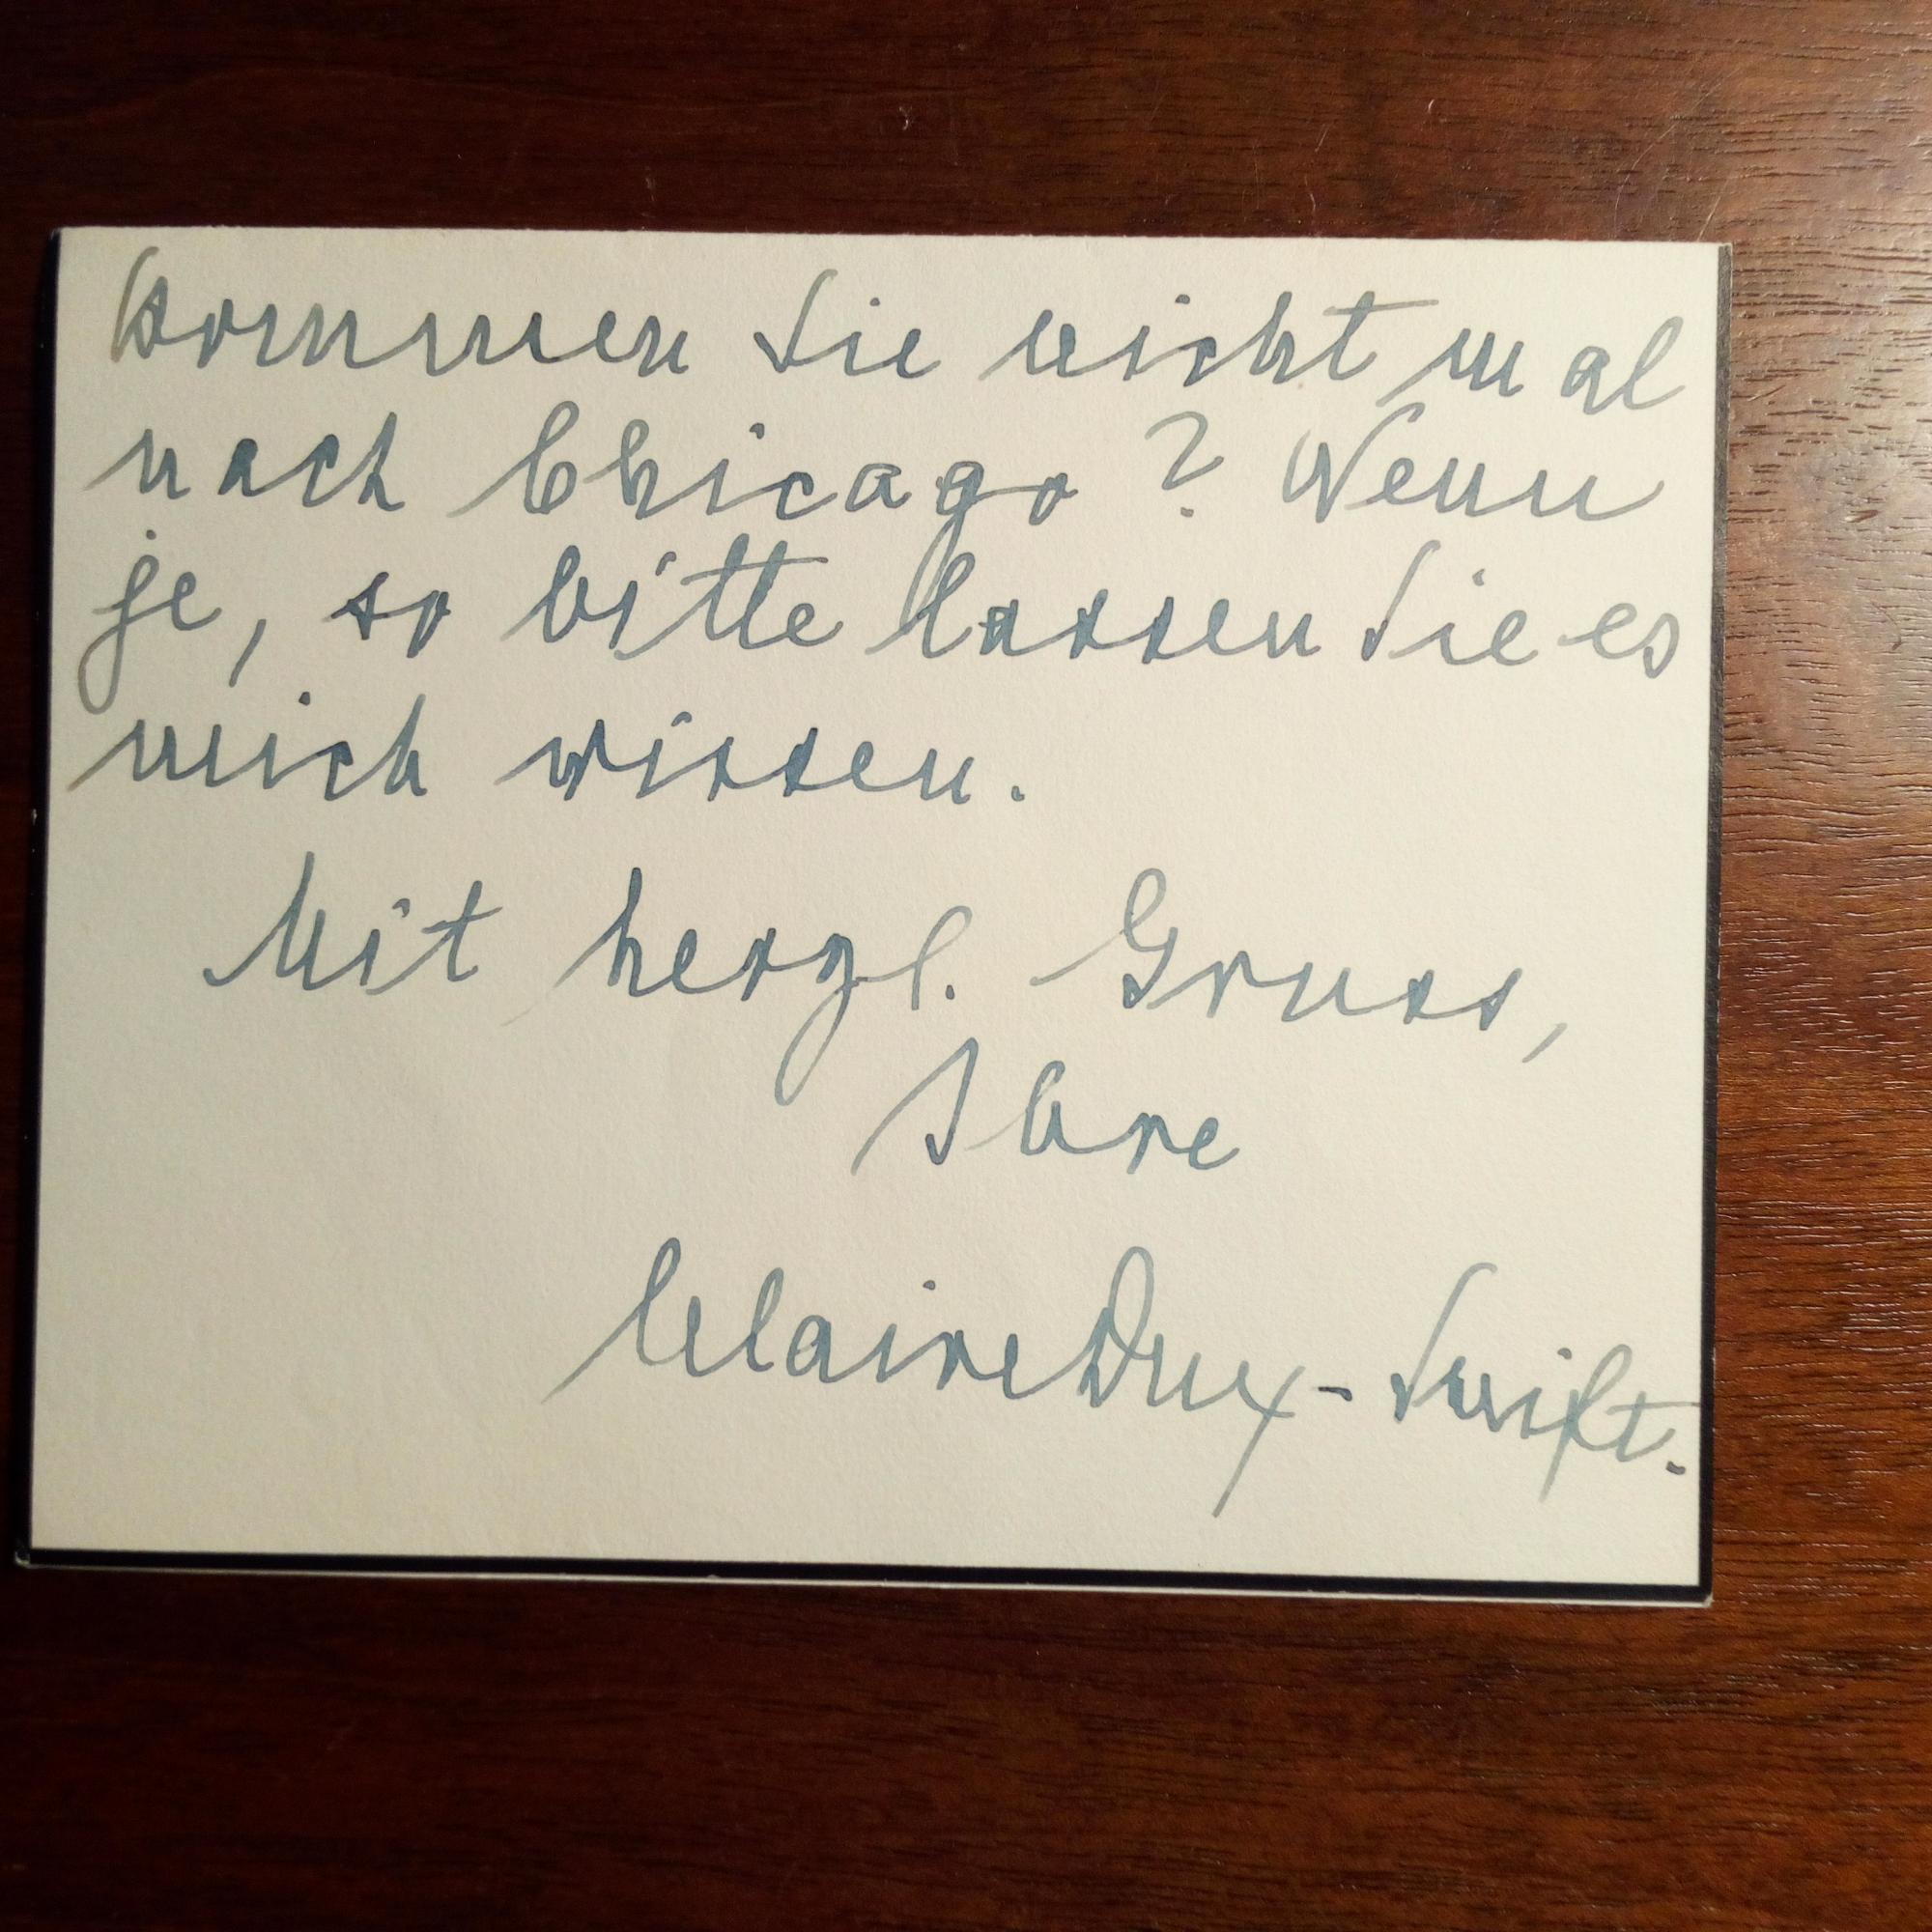 Kommen Sie nicht mal
nach Chicago? Wenn
je, so bitte lassen Sie es
mich wissen.
Mit herzl. Gruss,
Ihre
Claire Dux-Swift.